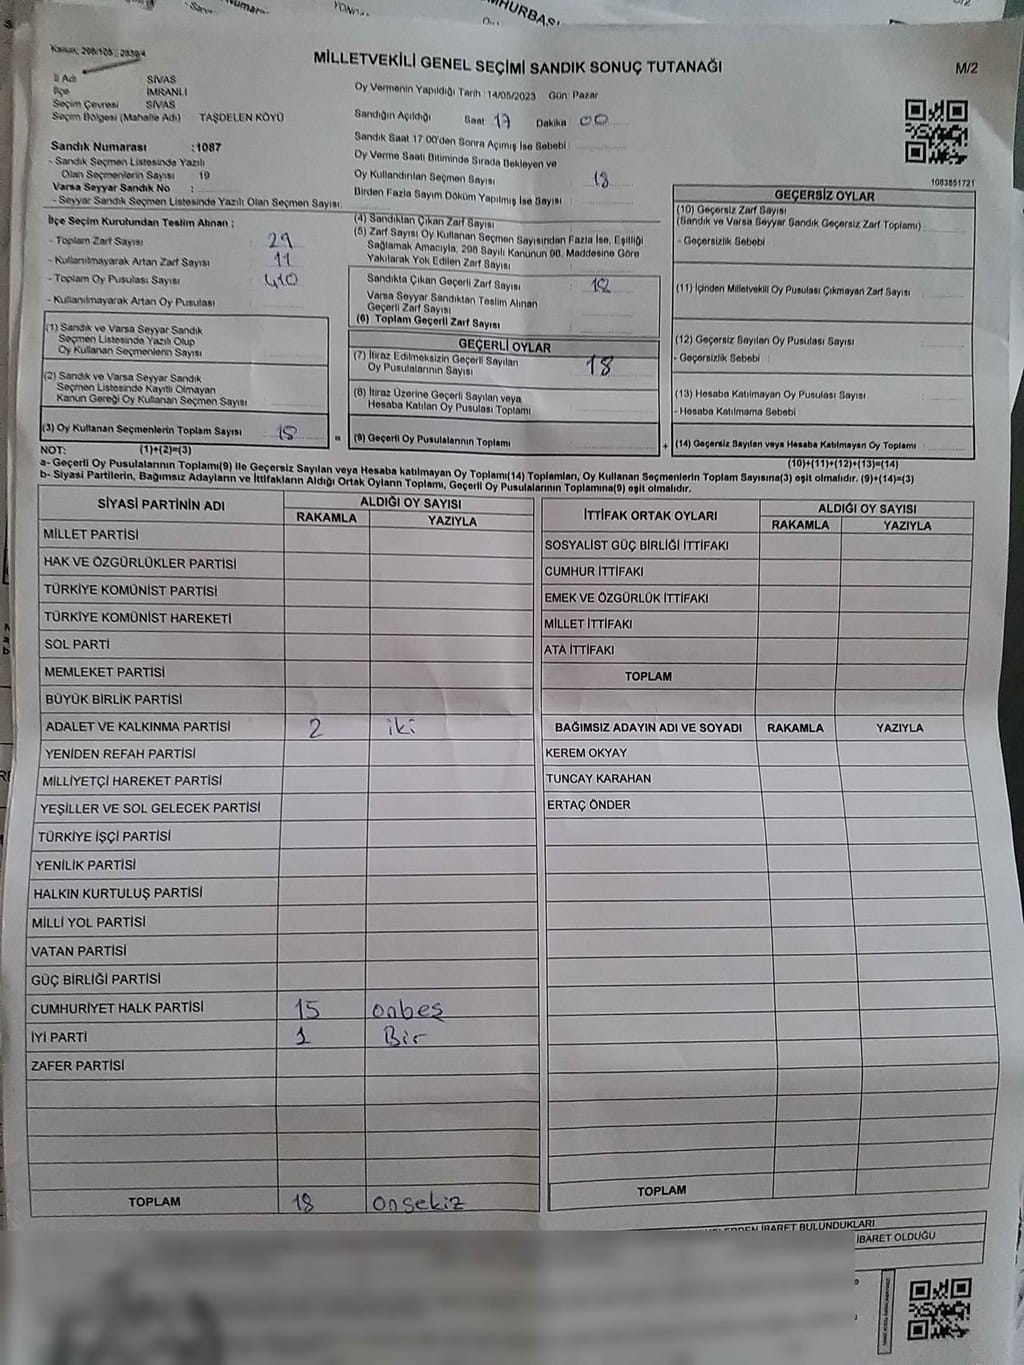 MHURBAŞ
Kanun; 298/105 - 2839/4
MİLLETVEKİLİ GENEL SEÇİMİ SANDIK SONUÇ TUTANAĞI
M/2
İl Adı : SİVAS
İlçe : İMRANLI
Seçim Çevresi : SİVAS
Seçim Bölgesi (Mahalle Adı) : TAŞDELEN KÖYÜ
Sandık Numarası :1087
- Sandık Seçmen Listesinde Yazılı
Olan Seçmenlerin Sayısı 19
Varsa Seyyar Sandık No :
- Seyyar Sandık Seçmen Listesinde Yazılı Olan Seçmen Sayısı:
Oy Vermenin Yapıldığı Tarih :14/05/2023 Gün: Pazar
Sandığın Açıldığı Saat 17 Dakika 00
Sandık Saat 17:00'den Sonra Açılmış İse Sebebi
Oy Verme Saati Bitiminde Sırada Bekleyen ve
Oy Kullandırılan Seçmen Sayısı 18
Birden Fazla Sayım Döküm Yapılmış İse Sayısı
1083851721
İlçe Seçim Kurulundan Teslim Alınan ;
- Toplam Zarf Sayısı 29
- Kullanılmayarak Artan Zarf Sayısı 11
- Toplam Oy Pusulası Sayısı 410
- Kullanılmayarak Artan Oy Pusulası
(1) Sandık ve Varsa Seyyar Sandık
Seçmen Listesinde Yazılı Olup
Oy Kullanan Seçmenlerin Sayısı
(2) Sandık ve Varsa Seyyar Sandık
Seçmen Listesinde Kayıtlı Olmayan
Kanun Gereği Oy Kullanan Seçmen Sayısı
(3) Oy Kullanan Seçmenlerin Toplam Sayısı 18
(1)+(2)=(3)
(4) Sandıktan Çıkan Zarf Sayısı
(5) Zarf Sayısı Oy Kullanan Seçmen Sayısından Fazla İse, Eşitliği
Sağlamak Amacıyla; 298 Sayılı Kanunun 98. Maddesine Göre
Yakılarak Yok Edilen Zarf Sayısı
Sandıkta Çıkan Geçerli Zarf Sayısı 18
Varsa Seyyar Sandıktan Teslim Alınan
Geçerli Zarf Sayısı
(6) Toplam Geçerli Zarf Sayısı
GEÇERLİ OYLAR
(7) İtiraz Edilmeksizin Geçerli Sayılan
Oy Pusulalarının Sayısı 18
(8) İtiraz Üzerine Geçerli Sayılan veya
Hesaba Katılan Oy Pusulası Toplamı
= (9) Geçerli Oy Pusulalarının Toplamı
GEÇERSİZ OYLAR
(10) Geçersiz Zarf Sayısı
(Sandık ve Varsa Seyyar Sandık Geçersiz Zarf Toplamı)
- Geçersizlik Sebebi
(11) İçinden Milletvekili Oy Pusulası Çıkmayan Zarf Sayısı
(12) Geçersiz Sayılan Oy Pusulası Sayısı
- Geçersizlik Sebebi
(13) Hesaba Katılmayan Oy Pusulası Sayısı
- Hesaba Katılmama Sebebi
+ (14) Geçersiz Sayılan veya Hesaba Katılmayan Oy Toplamı
(10)+(11)+(12)+(13)=(14)
NOT:
a- Geçerli Oy Pusulalarının Toplamı(9) ile Geçersiz Sayılan veya Hesaba katılmayan Oy Toplamı(14) Toplamları, Oy Kullanan Seçmenlerin Toplam Sayısına(3) eşit olmalıdır. (9)+(14)=(3)
b- Siyasi Partilerin, Bağımsız Adayların ve İttifakların Aldığı Ortak Oyların Toplamı, Geçerli Oy Pusulalarının Toplamına(9) eşit olmalıdır.
SİYASİ PARTİNİN ADI ALDIĞI OY SAYISI
RAKAMLA YAZIYLA
MİLLET PARTİSİ
HAK VE ÖZGÜRLÜKLER PARTİSİ
TÜRKİYE KOMÜNİST PARTİSİ
TÜRKİYE KOMÜNİST HAREKETİ
SOL PARTİ
MEMLEKET PARTİSİ
BÜYÜK BİRLİK PARTİSİ
ADALET VE KALKINMA PARTİSİ 2 iki
YENİDEN REFAH PARTİSİ
MİLLİYETÇİ HAREKET PARTİSİ
YEŞİLLER VE SOL GELECEK PARTİSİ
TÜRKİYE İŞÇİ PARTİSİ
YENİLİK PARTİSİ
HALKIN KURTULUŞ PARTİSİ
MİLLİ YOL PARTİSİ
VATAN PARTİSİ
GÜÇ BİRLİĞİ PARTİSİ
CUMHURİYET HALK PARTİSİ 15 onbeş
İYİ PARTİ 1 Bir
ZAFER PARTİSİ
TOPLAM 18 onsekiz
İTTİFAK ORTAK OYLARI ALDIĞI OY SAYISI
RAKAMLA YAZIYLA
SOSYALİST GÜÇ BİRLİĞİ İTTİFAKI
CUMHUR İTTİFAKI
EMEK VE ÖZGÜRLÜK İTTİFAKI
MİLLET İTTİFAKI
ATA İTTİFAKI
TOPLAM
BAĞIMSIZ ADAYIN ADI VE SOYADI RAKAMLA YAZIYLA
KEREM OKYAY
TUNCAY KARAHAN
ERTAÇ ÖNDER
TOPLAM
İBARET BULUNDUKLARI
İBARET OLDUĞU